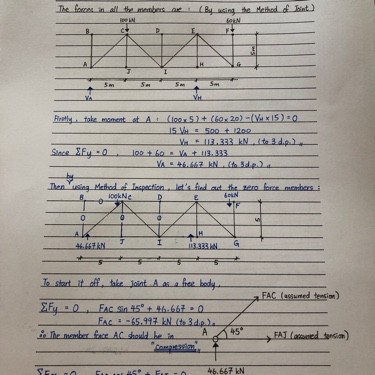 The forces in all the members are : (By using the Method of Joint.)
100kN 60kN
B C D E F
5m
A J I H G
5m 5m 5m 5m
VA VH
Firstly, take moment at A : (100×5) + (60×20) − (VH × 15) = 0
15 VH = 500 + 1200
VH = 113.333 kN, (to 3 d.p.) "
Since ΣFy = 0 , 100 + 60 = VA + 113.333
VA = 46.667 kN, (to 3 d.p.) "
by
Then using Method of Inspection, let's find out the zero force members :
B 100kN C D E 60kN F
0
0 0 5
A J I H G
46.667 kN 113.333 kN
5 5 5 5
To start it off, take Joint A as a free body.
FAC (assumed tension)
ΣFy = 0 , FAC Sin 45° + 46.667 = 0
FAC = -65.997 kN (to 3 d.p.) "
A 45° FAJ (assumed tension)
∴ The member force AC should be in
"Compression"
46.667 kN
ΣFx = 0 , FAC cos 45° + FAJ = 0